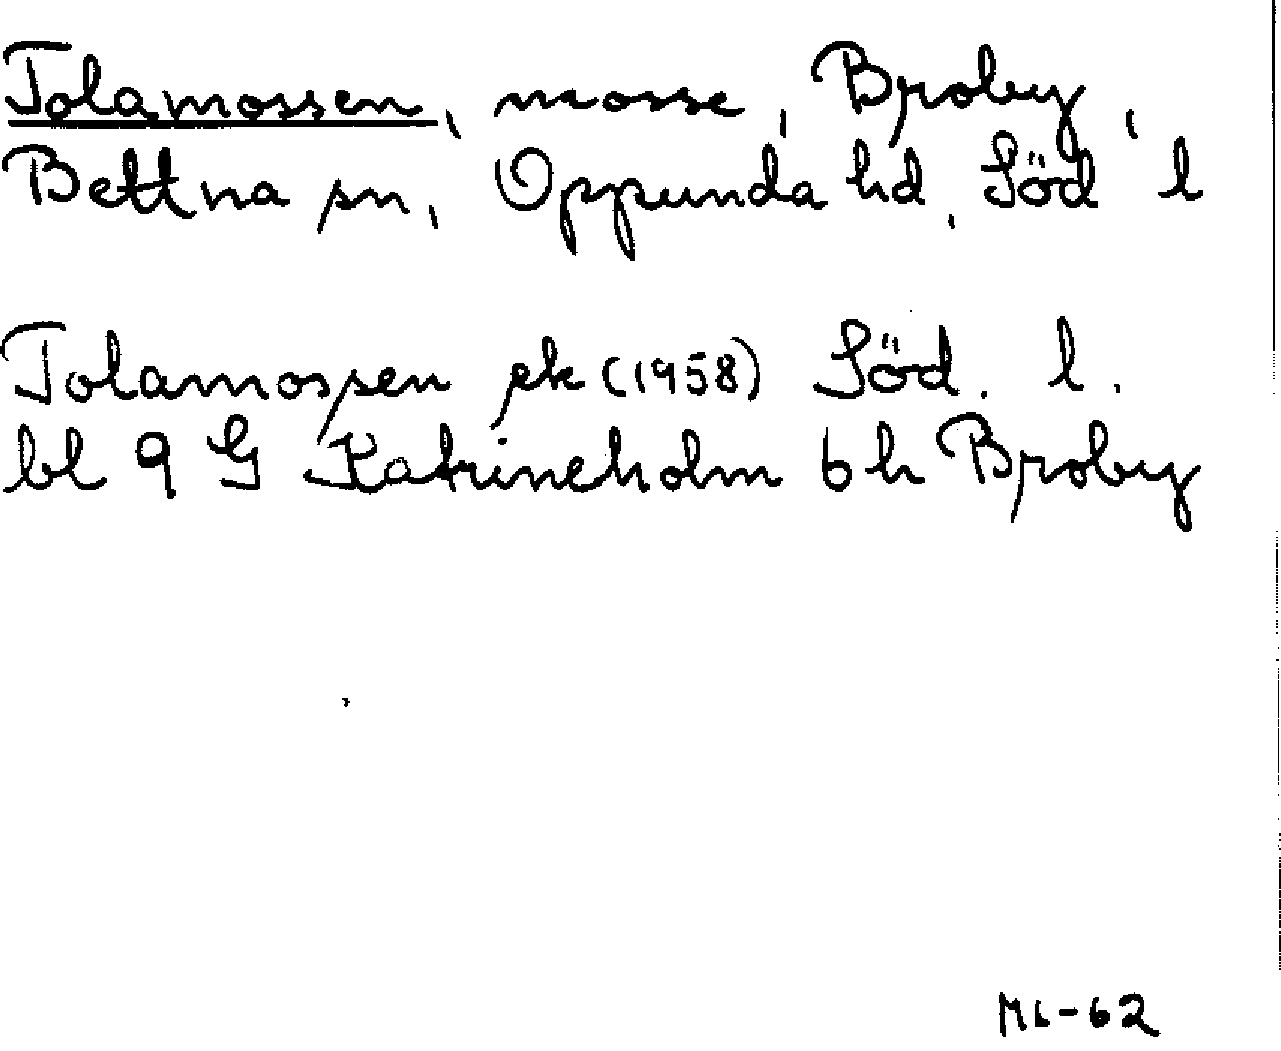 Tolamossen, mosse, Broby,
Bettna sn, Oppunda hd, Söd l
Tolamossen ek (1958) Söd. l.
bl 9 G Katrineholm 6 h Broby
ML-62